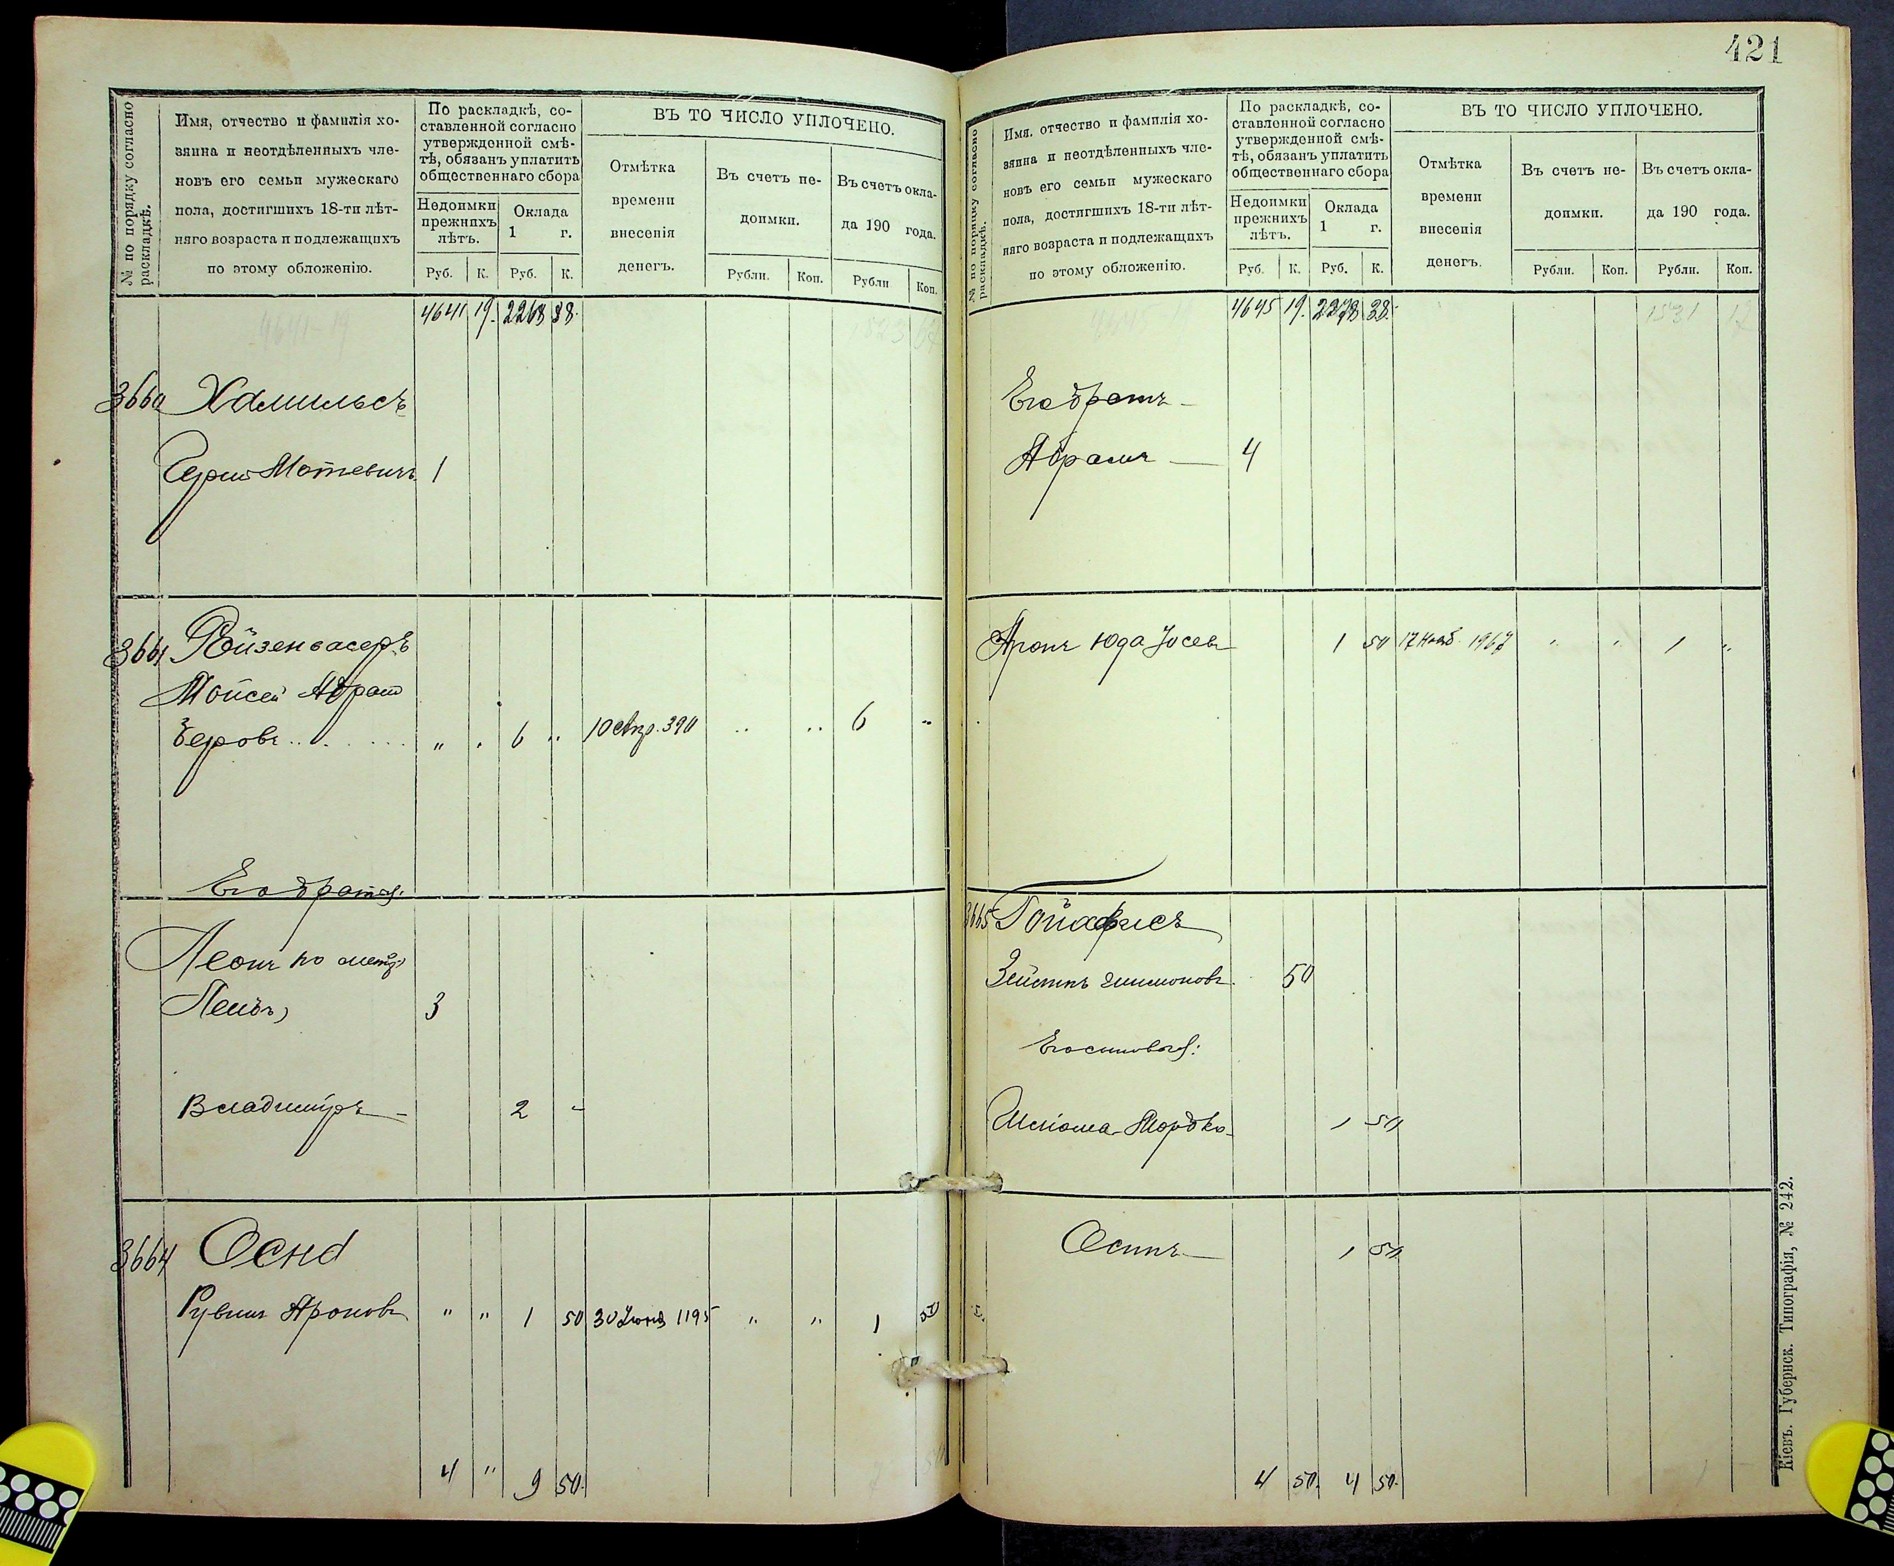 421
№ по порядку согласно раскладкѣ.
Имя, отчество и фамилія хо-
зяина и неотдѣленныхъ чле-
новъ его семьи мужескаго
пола, достигшихъ 18-ти лѣт-
няго возраста и подлежащихъ
по этому обложенію.
По раскладкѣ, со-
ставленной согласно
утвержденной смѣ-
тѣ, обязанъ уплатить
общественнаго сбора
Недоимки
прежнихъ
лѣтъ.
Оклада
1 г.
Руб. К. Руб. К.
ВЪ ТО ЧИСЛО УПЛОЧЕНО.
Отмѣтка
времени
внесенія
денегъ.
Въ счетъ не-
доимки.
Рубли. Коп.
Въ счетъ окла-
да 190 года.
Рубли Коп.
4641 19. 2268 38.
4641-19
3660 Хамильсъ
Мотевичъ 1
3661 Ройзенвасеръ
Мойсей Абрам
Беровъ . . . . . . " . 6 .. 10 Апр. 390 .. .. 6 "
Его братья:
Леонъ по метр.
Лейбъ) 3
Владиміръ - 2 -
3664 Осна
Рувинъ Ароновъ " " 1 50 30 Июня 1195 " " 1 50
4 " 9 50.
№ по порядку согласно раскладкѣ.
Имя, отчество и фамилія хо-
зяина и неотдѣленныхъ чле-
новъ его семьи мужескаго
пола, достигшихъ 18-ти лѣт-
няго возраста и подлежащихъ
по этому обложенію.
По раскладкѣ, со-
ставленной согласно
утвержденной смѣ-
тѣ, обязанъ уплатить
общественнаго сбора
Недоимки
прежнихъ
лѣтъ.
Оклада
1 г.
Руб. К. Руб. К.
ВЪ ТО ЧИСЛО УПЛОЧЕНО.
Отмѣтка
времени
внесенія
денегъ.
Въ счетъ не-
доимки.
Рубли. Коп.
Въ счетъ окла-
да 190 года.
Рубли. Коп.
4645 19. 2278 38. 1531 12
Его братъ -
Абрамъ — 4
Аронъ Юда Іосевъ 1 50 17 Нояб. 1967 " " 1 "
3665
50
Его сыновья:
Шлиома-Мордко 1 50
Осипъ — 1 50
4 50. 4 50.
Кіевъ. Губернск. Типографія, № 242.